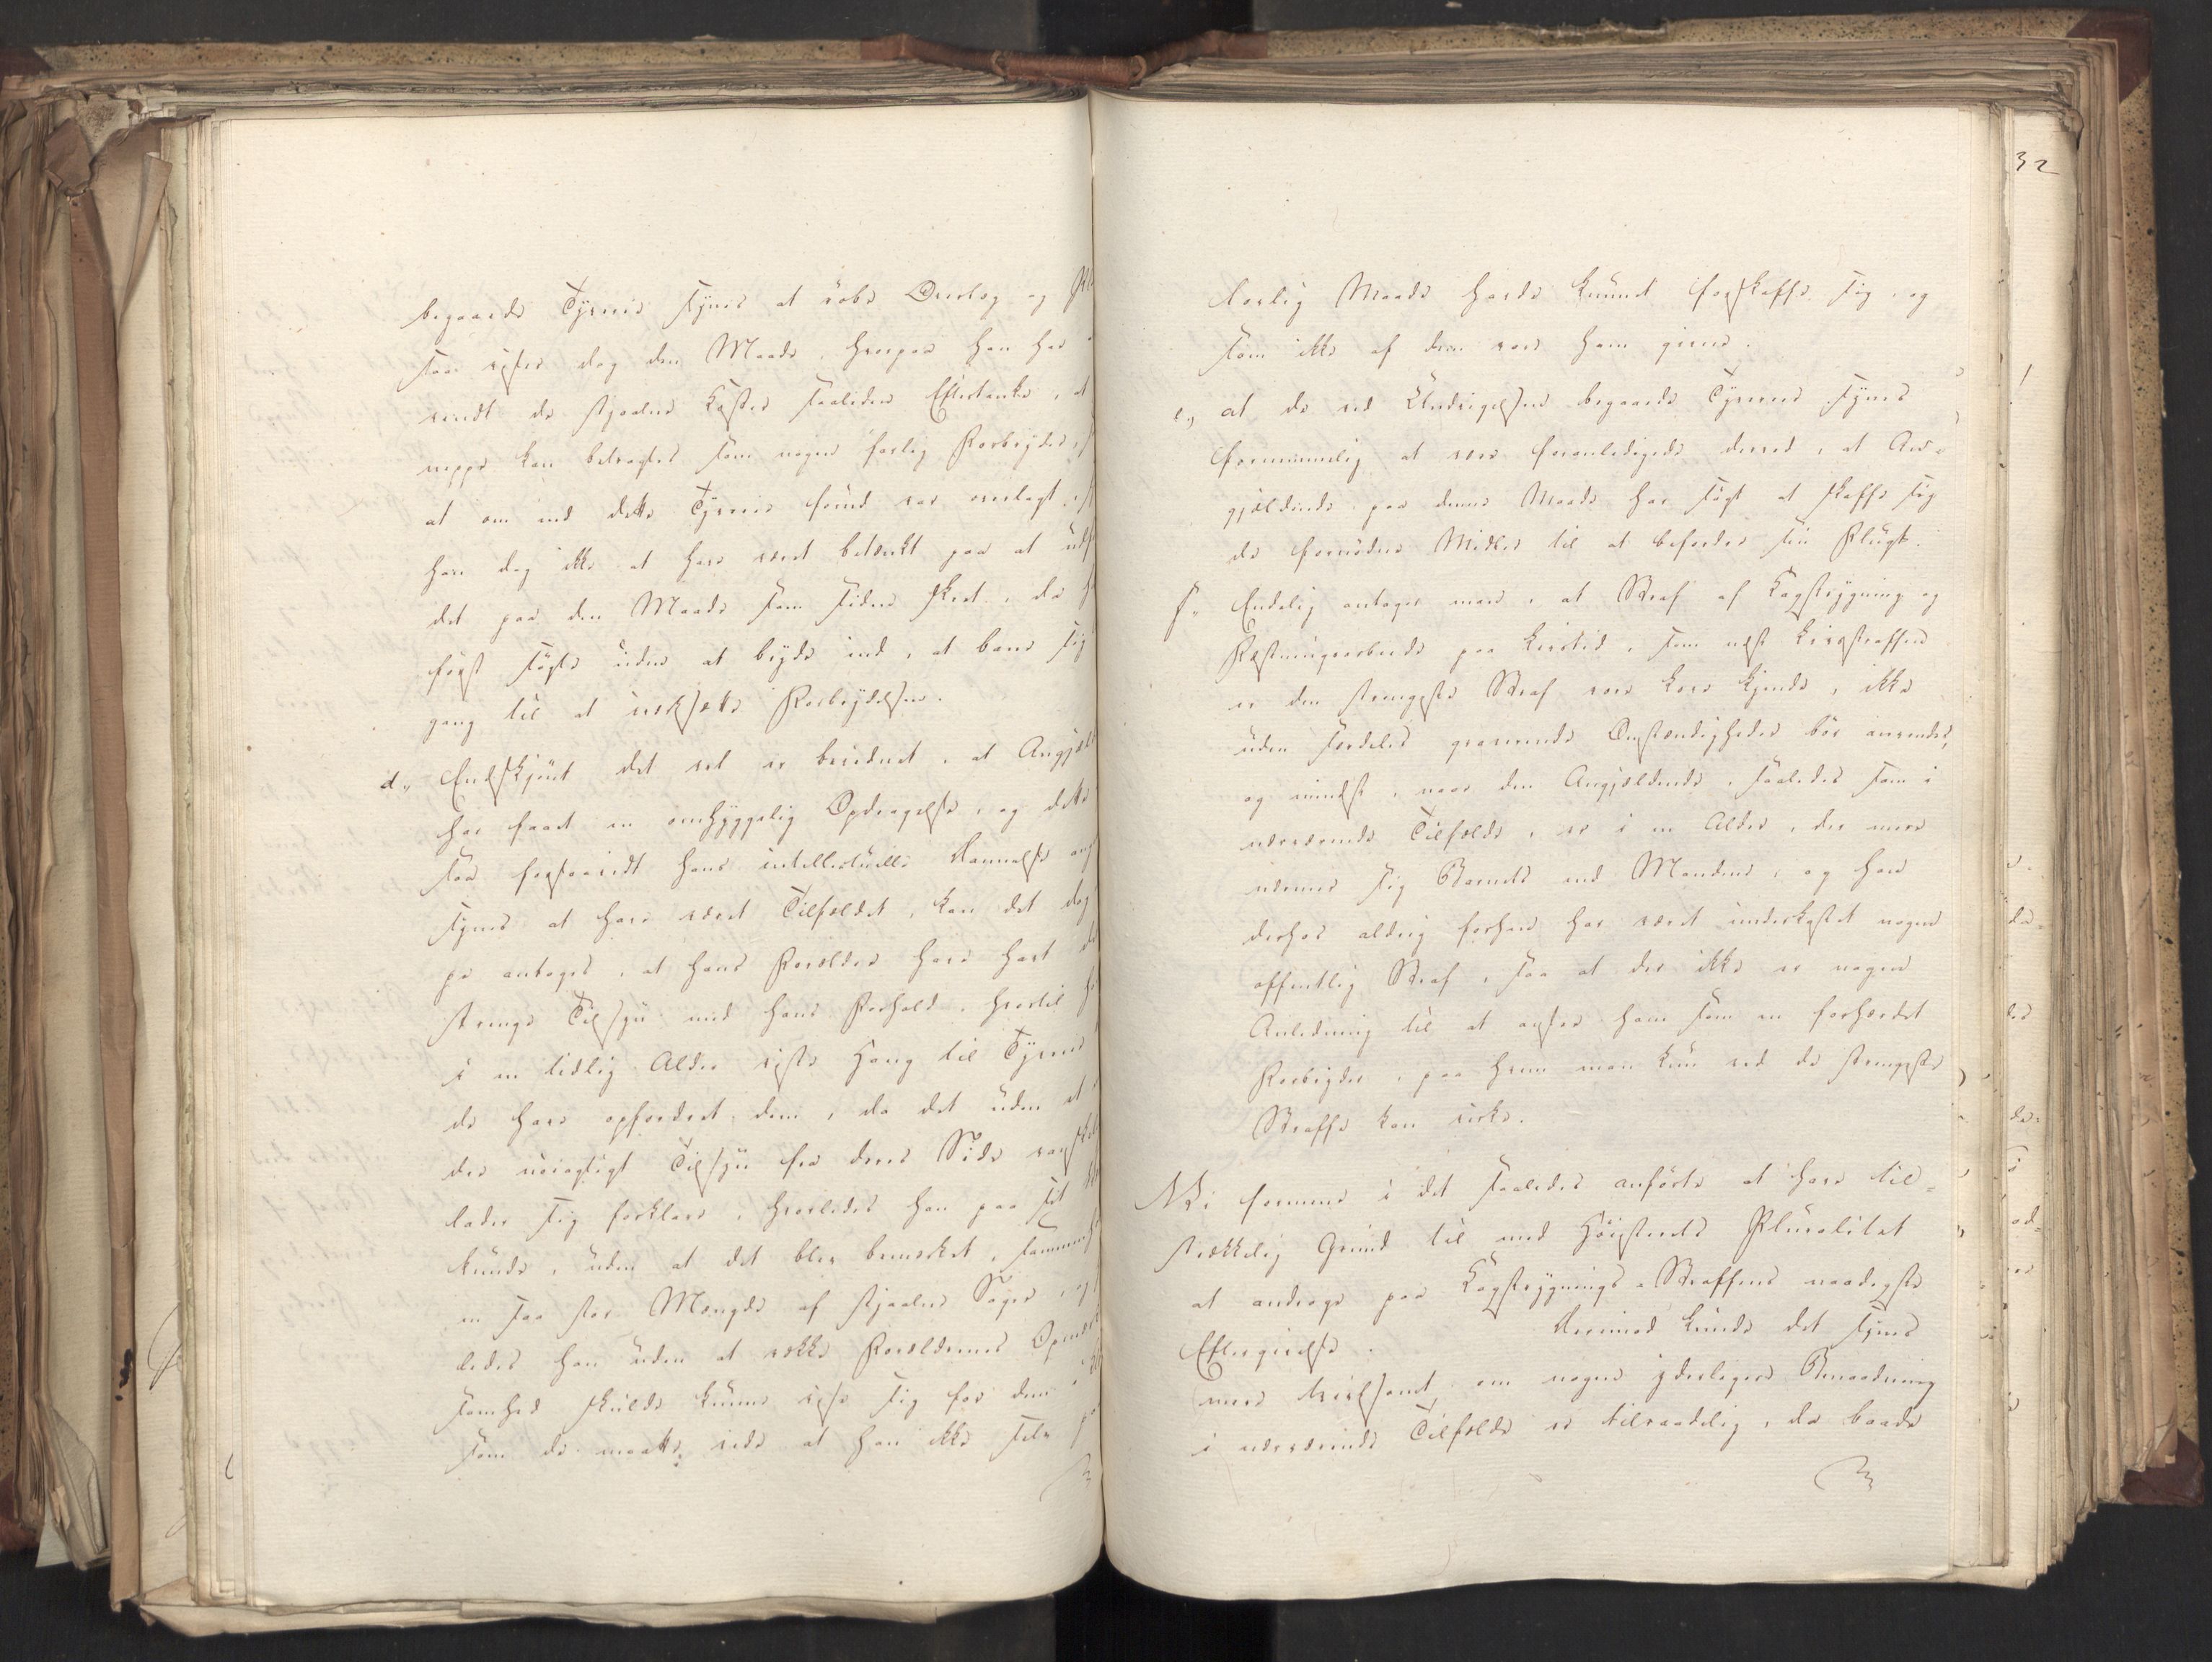 begaaede Tyverie synes at røbe Overlæg og
saa viser dog den Maade, hvorpaa han har
vendt de stjaalne Koster saaliden Eftertanke, at
neppe kan betragtes som nogen farlig Forbryder,
at om end dette Tyverie forud var overlagt,
han dog ikke at have været betænkt paa at
det paa den Maade som siden skeet, da
først søgte uden at bryde ind, at bane sig
gang til at iværksætte Forbrydelsen.
d., Endskjønt det vel er bevidnet, at
har faaet en omhyggelig Opdragelse, og dette
saa forsaavidt hans intellectuelle Dannelse
synes at have været Tilfældet, kan det dog
antages, at hans Forældre have havt
strenge Tilsyn med hans Forhold, hvortil
i en tidlig Alder viste Hang til Tyverie
de have opfordret dem, da det uden at
der nøiagtigt Tilsyn fra deres Side
lader sig forklare, hvorledes han paa
kunde, uden at det blev bemærket,
en saa stor Mængde af stjaalne Sager,
ledes han uden at vække Forældrenes
somhed skulde kunne vise sig for dem
som de maatte vide at han ikke selv
32
lovlig Maade havde kunnet forskaffe sig og
som ikke af dem vare ham givne.
e., at de ved Undvigelsen begaaede Tyverier synes
fornemmelig at være foranledigede derved, at An-
gjældende paa denne Maade har søgt at skaffe sig
de fornødne Midler til at befordre sin Flugt.
f., Endelig antager man, at Straf af Kagstrygning og
Fæstningsarbeide paa Livstid, som næst Livsstraffen
er den strengeste Straf vore Love kjende, ikke
uden særdeles graverende Omstændigheder bør anvendes,
og mindst, naar den Angjældende, saaledes som i
nærværende Tilfælde, er i en Alder, der mere
nærmer sig Barnets end Mandens, og han
derhos aldrig forhen har været underkastet nogen
offentlig Straf, saa at der ikke er nogen
Anledning til at ansee ham som en forhærdet
Forbryder, paa hvem man kun ved de strengeste
Straffe kan virke.
Vi formene i det saaledes anførte at have til-
strækkelig Grund til med Høiesterets Pluralitet
at andrage paa Kagstrygnings-Straffens naadigste
Eftergivelse. Derimod kunde det synes
mere tvivlsomt, om nogen yderligere Benaadning
i nærværende Tilfælde er tilraadelig, da baade